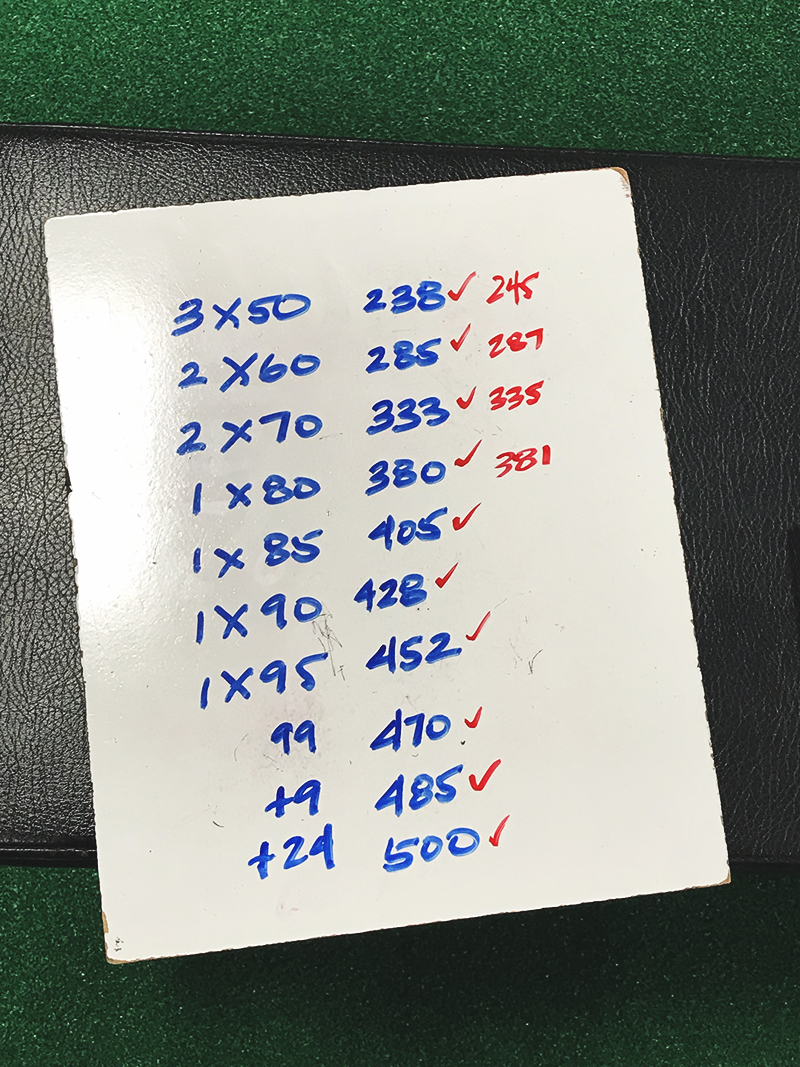 3 X 50 238 ✓ 245
2 X 60 285 ✓ 287
2 X 70 333 ✓ 335
1 X 80 380 ✓ 381
1 X 85 405 ✓
1 X 90 428 ✓
1 X 95 452 ✓
99 470 ✓
+9 485 ✓
+24 500 ✓